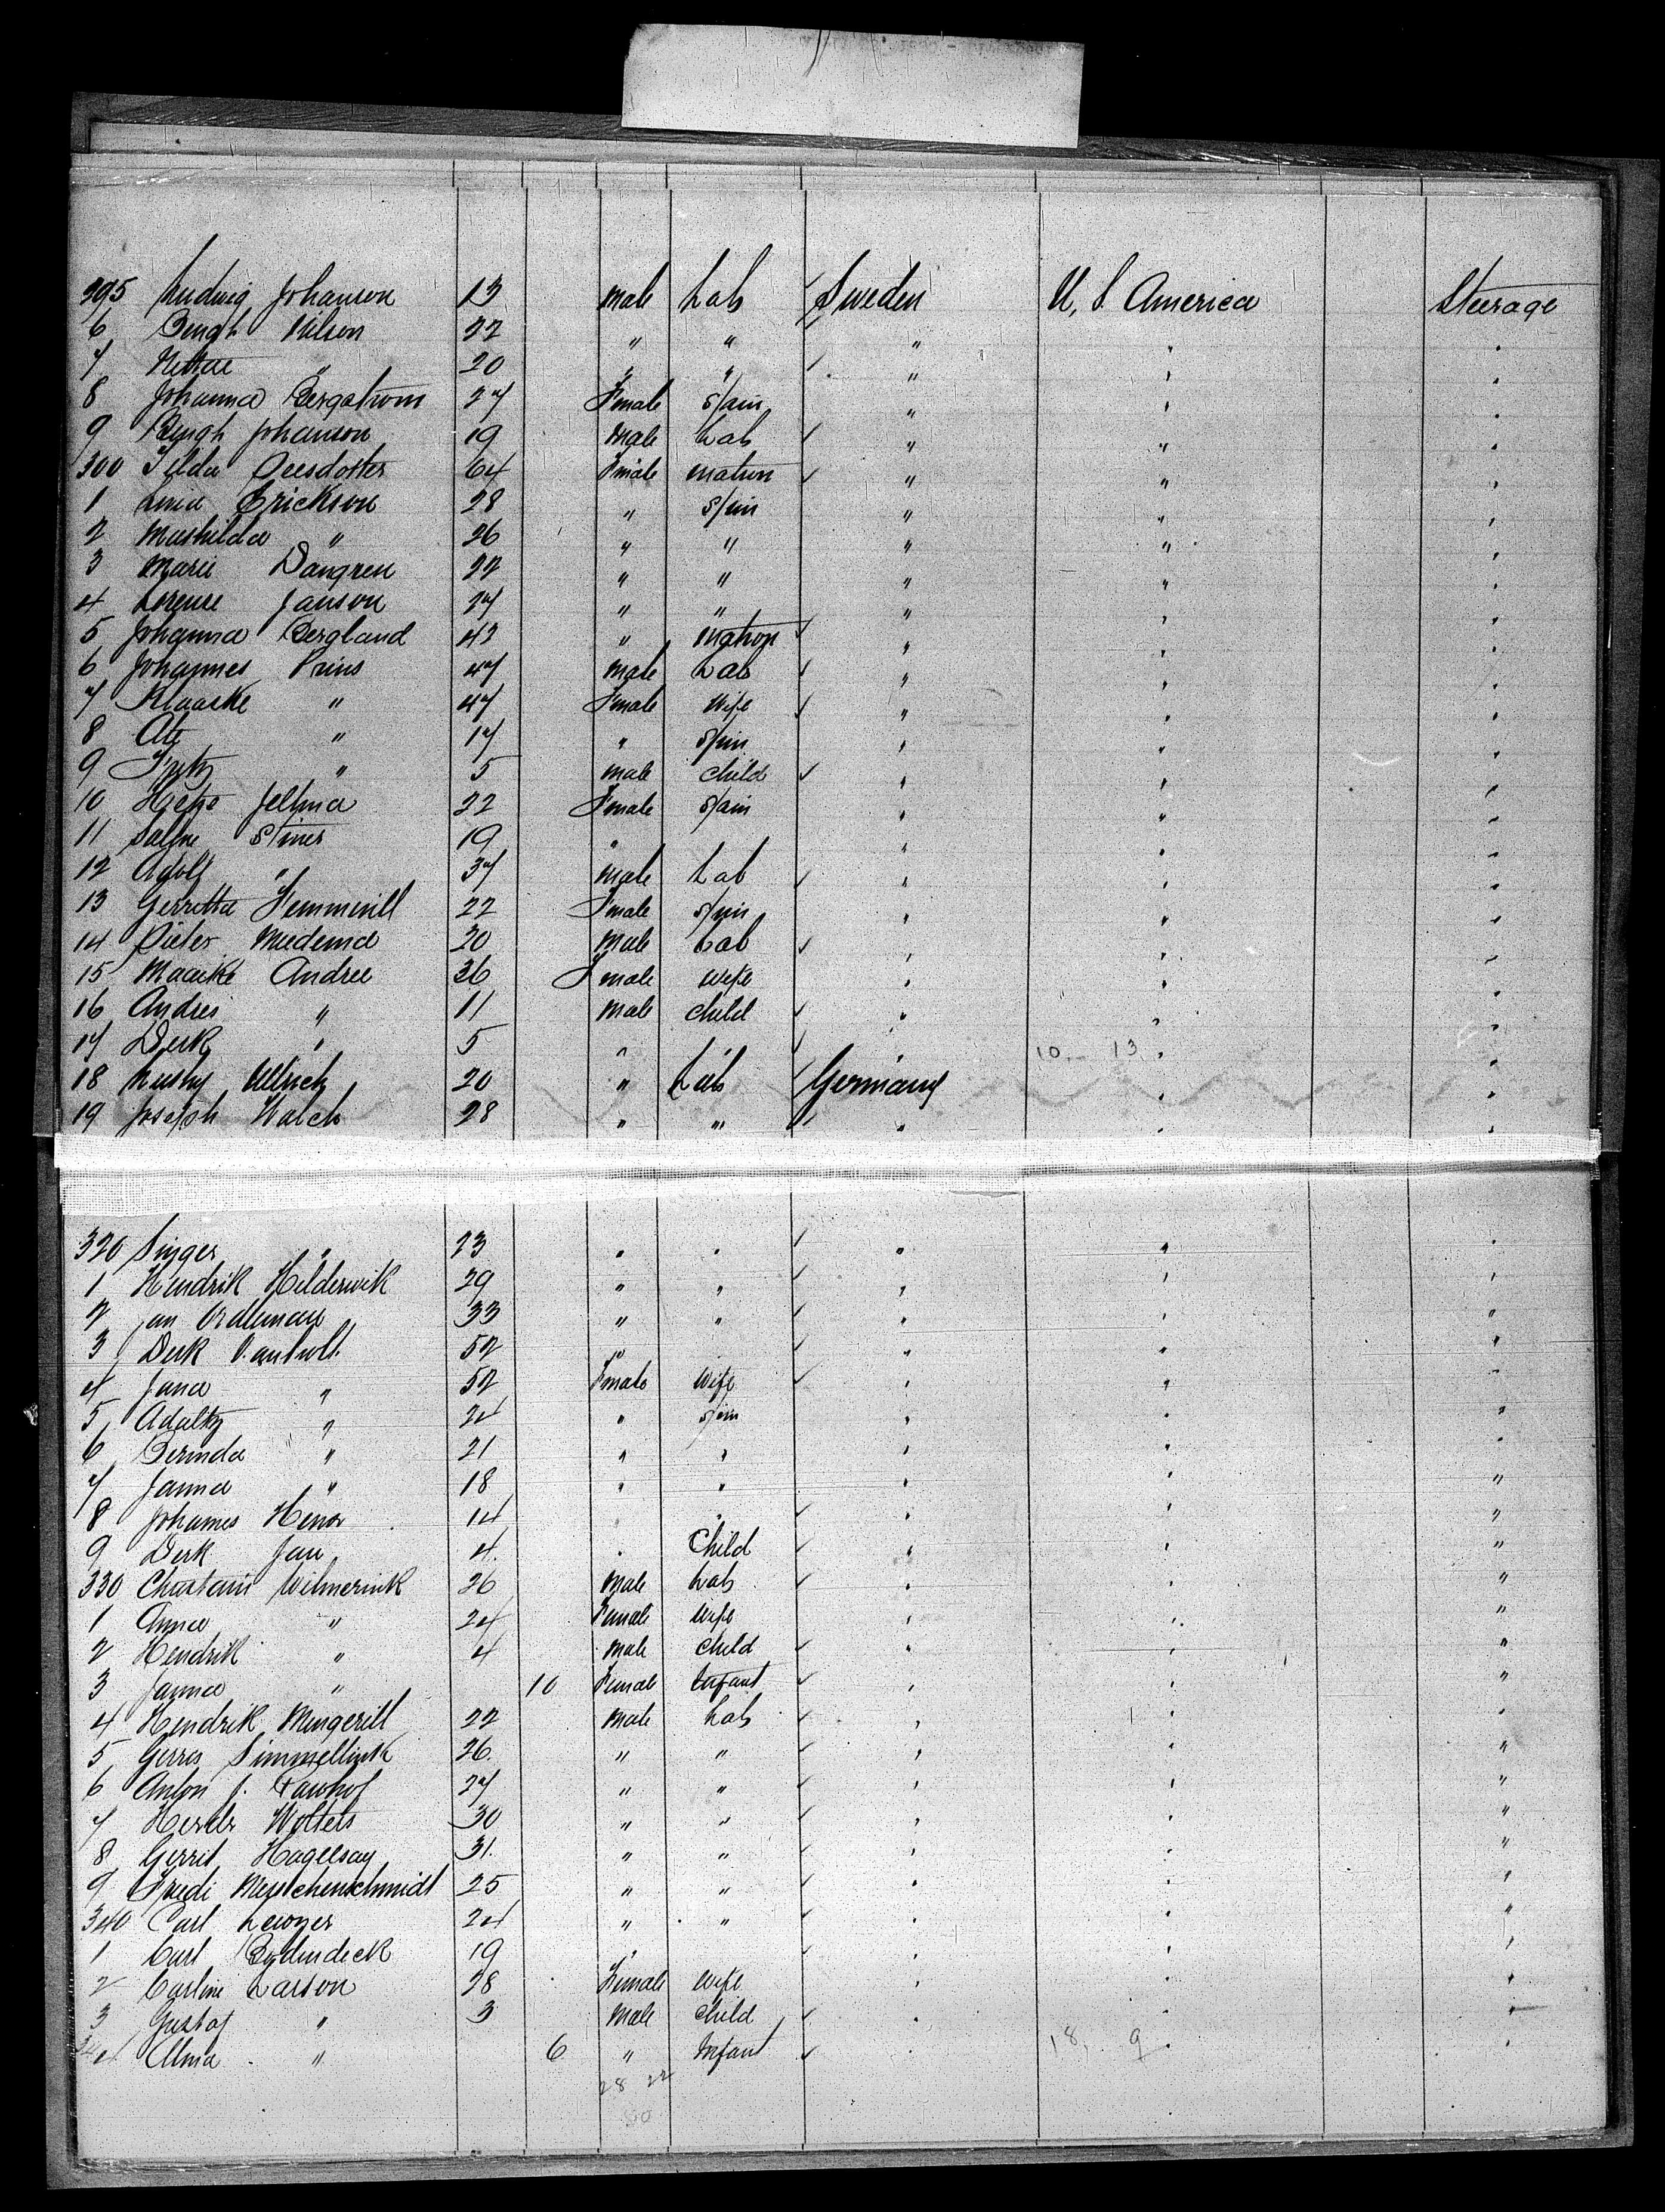 295 Ludwig Johanson 13 male Lab Sweden U, S. America Steerage
6 Bengh Nilson 22 " " " " "
7 Nettae " 20 " " " " "
8 Johanna Bergstrom 27 Female Spin " " "
9 Bengh Johanson 19 Male Lab " " "
300 Tilda Oeesdotter 64 Female matron " " "
1 Lina Erickson 28 " Spin " " "
2 Mathilda " 26 " " " " "
3 Marie Dangren 22 " " " " "
4 Lorense Janson 27 " " " " "
5 Johanna Bergland 43 " matron " " "
6 Johannes Prins 47 male Lab " " "
7 Klaaske " 47 Female Wife " " "
8 Ate " 17 " Spin " " "
9 " 5 male child " " "
10 Jellma 22 Female Spin " " "
11 Stiner 19 " " " "
12 Adolf " 37 male Lab " " "
13 Gerritta 22 Female Spin " " "
14 Pieter Miedema 20 Male Lab " " "
15 Maaike Andree 36 Female wife " " "
16 Andries " 11 male child " " "
17 Derk " 5 " " " 10 - 13 " "
18 Ullrich 20 " Lab Germany " "
19 Joseph Walch 28 " " " " "
320 Singer " 23 " " " " "
1 Hendrik Hilderwik 29 " " " " "
2 Jan 33 " " " " "
3 Derk 52 " " " " "
4 Jana " 52 Female Wife " " "
5 " 24 " Spin " " "
6 Berinda " 21 " " " " "
7 Janna " 18 " " " " "
8 Johannes 14 " " " " "
9 Derk Jan 4 " Child " " "
330 Wilmerink 26 Male Lab " " "
1 Anna " 24 Female Wife " " "
2 Hendrik " 4 male child " " "
3 Janna " 10 Female Infant " " "
4 Hendrik Mengerill 22 male Lab " " "
5 Gerres Simmellink 26 " " " " "
6 Anton J. 27 " " " " "
7 Wolters 30 " " " " "
8 Gerrit 31 " " " " "
9 Fredi Messchenschmidt 25 " " " " "
340 Carl 24 " " " " "
1 Carl 19 " " " "
2 Carline Larson 28 Female wife " " "
3 Gustaf " 3 Male child " " "
344 Alma " 6 " Infant " 18, 9 " "
28 22
50